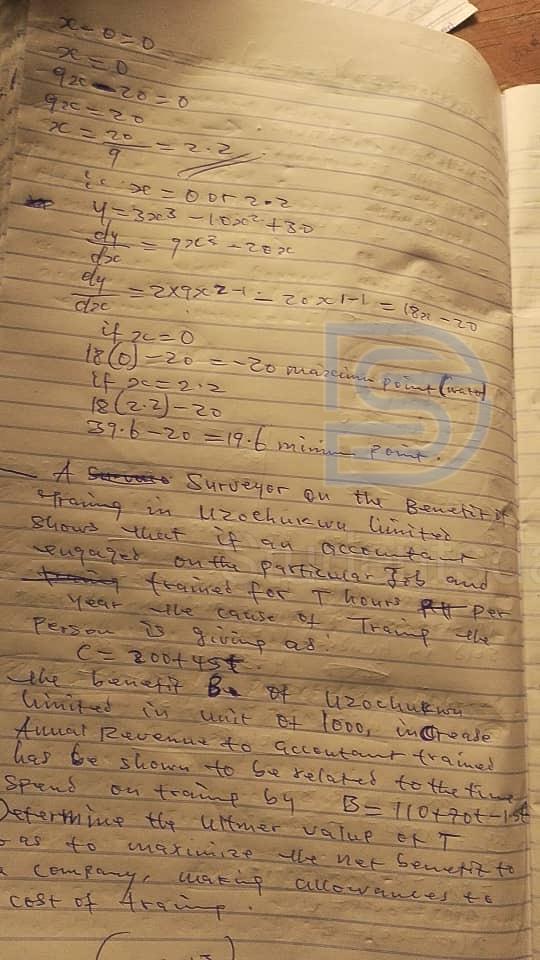 x - 0 = 0
x = 0
9x - 20 = 0
9x = 20
x = 20/9 = 2.2
x = 0 or 2.2
y = 3x³ - 10x² + 30
dy/dx = 9x² - 20x
dy/dx = 2x9x2-1 - 20x1-1 = 18x - 20
if x = 0
18(0) - 20 = -20 maximum point
if x = 2.2
18(2.2) - 20
39.6 - 20 = 19.6 minimum point.
A Surveyor on the Benefit of
Traning in Uzochukwu limited
shows that if an accountant
engaged on the particular Job and
trained for T hours per
year the cause of Traing the
Person is giving as:
C = 200 + 45t.
the benefit B of Uzochukwu
limited in unit of 1000, increase
Annual Revenue to accountant trained
has be shown to be related to the time
Spend on traing by B = 110 + 70t - 1.5t
Determine the value of T
as to maximize the net benefit to
company, making allowances to
cost of traing.